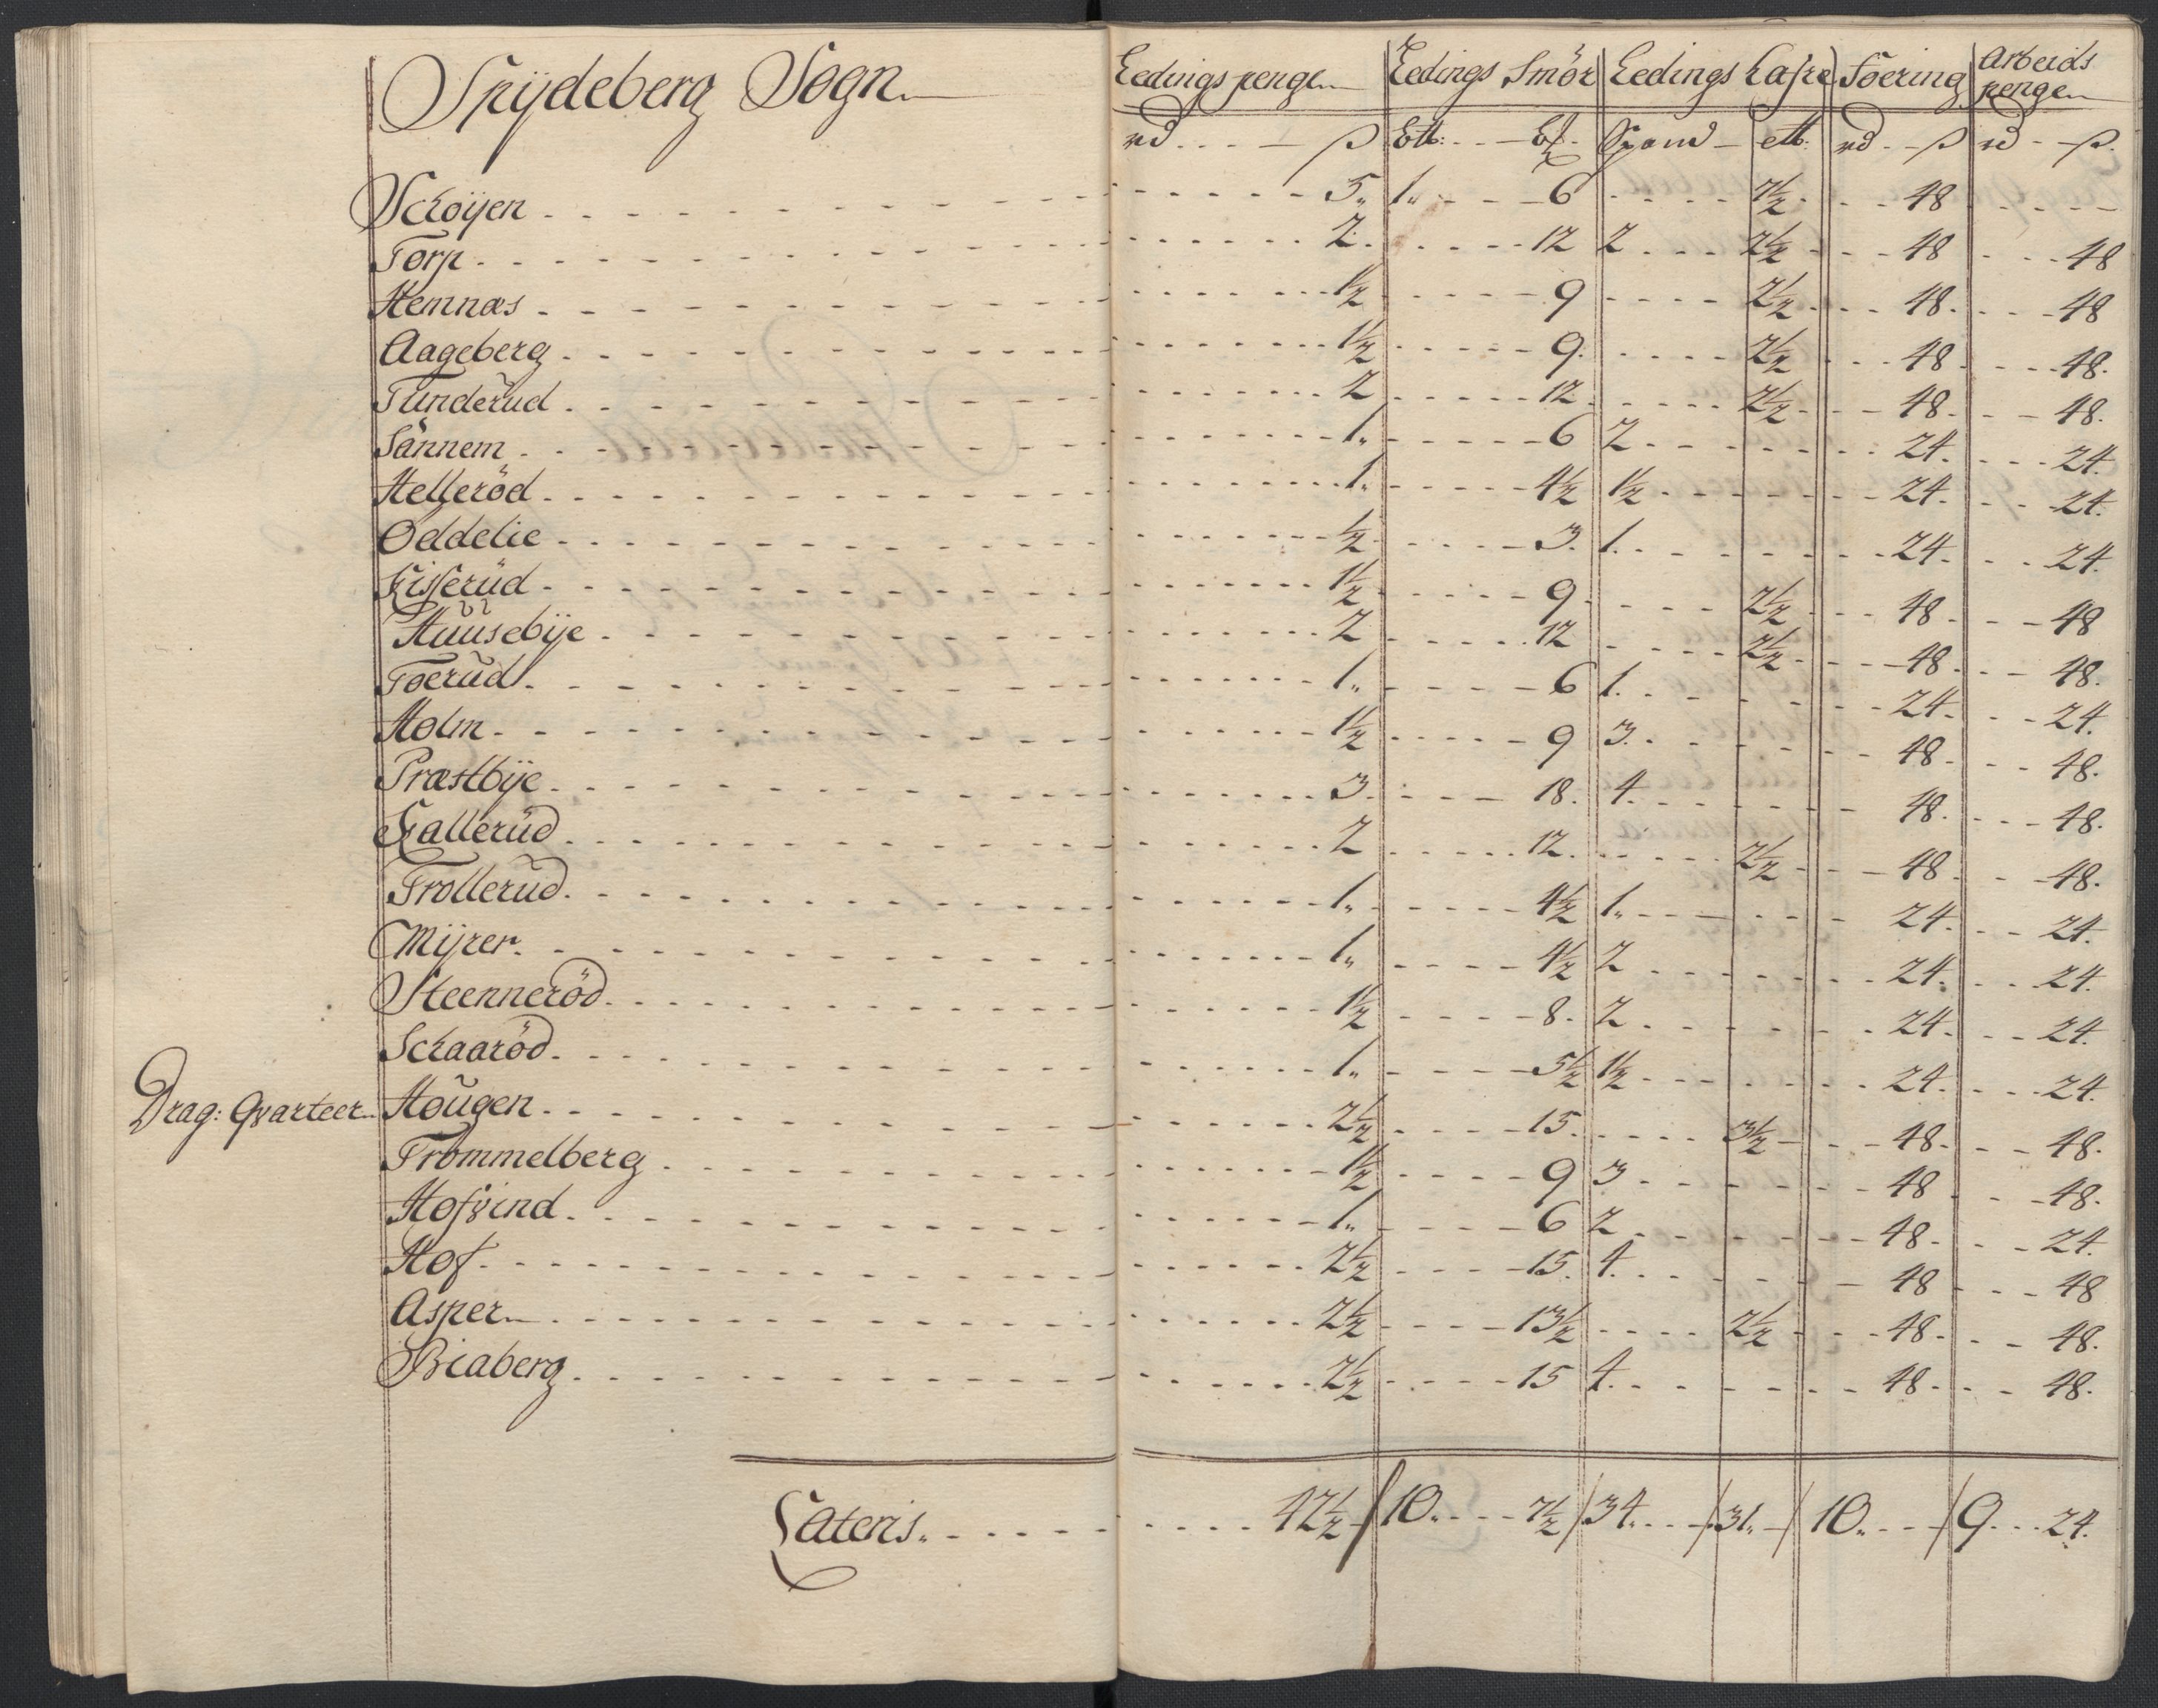 Spydeberg Sogn Ledings pengen Ledings Smör Ledings Lasre Foering Arbeids pengen
rd ß ß rd ß rd ß
Schöyen 5 1 6 7½ 48
Torp 2 12 2 2½ 48 48
Hemnæs 1½ 9 2½ 48 48
Aageberg 1½ 9 2½ 48 48
Tunderud 2 12 2½ 48 48
Sannem 1 6 2 24 24
Helleröd 1 4½ 1½ 24 24
Oddelie ½ 3 1 24 24
Kisserud 1½ 9 2½ 48 48
Huusebye 2 12 2½ 48 48
Toerud 1 6 1 24 24
Holm 1½ 9 3 48 48
Præstbye 3 18 4 48 48
Kallerud 2 12 2½ 48 48
Trollerud 1 4½ 1 24 24
Myrer 1 4½ 2 24 24
Steenneröd 1½ 8 2 24 24
Schaaröd 1 5½ 1½ 24 24
Drag: Qvarteer Hougen 2½ 15 3½ 48 48
Trommelberg 1½ 9 3 48 48
Hofvind 1 6 2 48 24
Hof 2½ 15 4 48 48
Asper 2½ 13½ 2½ 48 48
Biaberg 2½ 15 4 48 48
Lateris 42½ 10 7½ 34 31 10 9 24